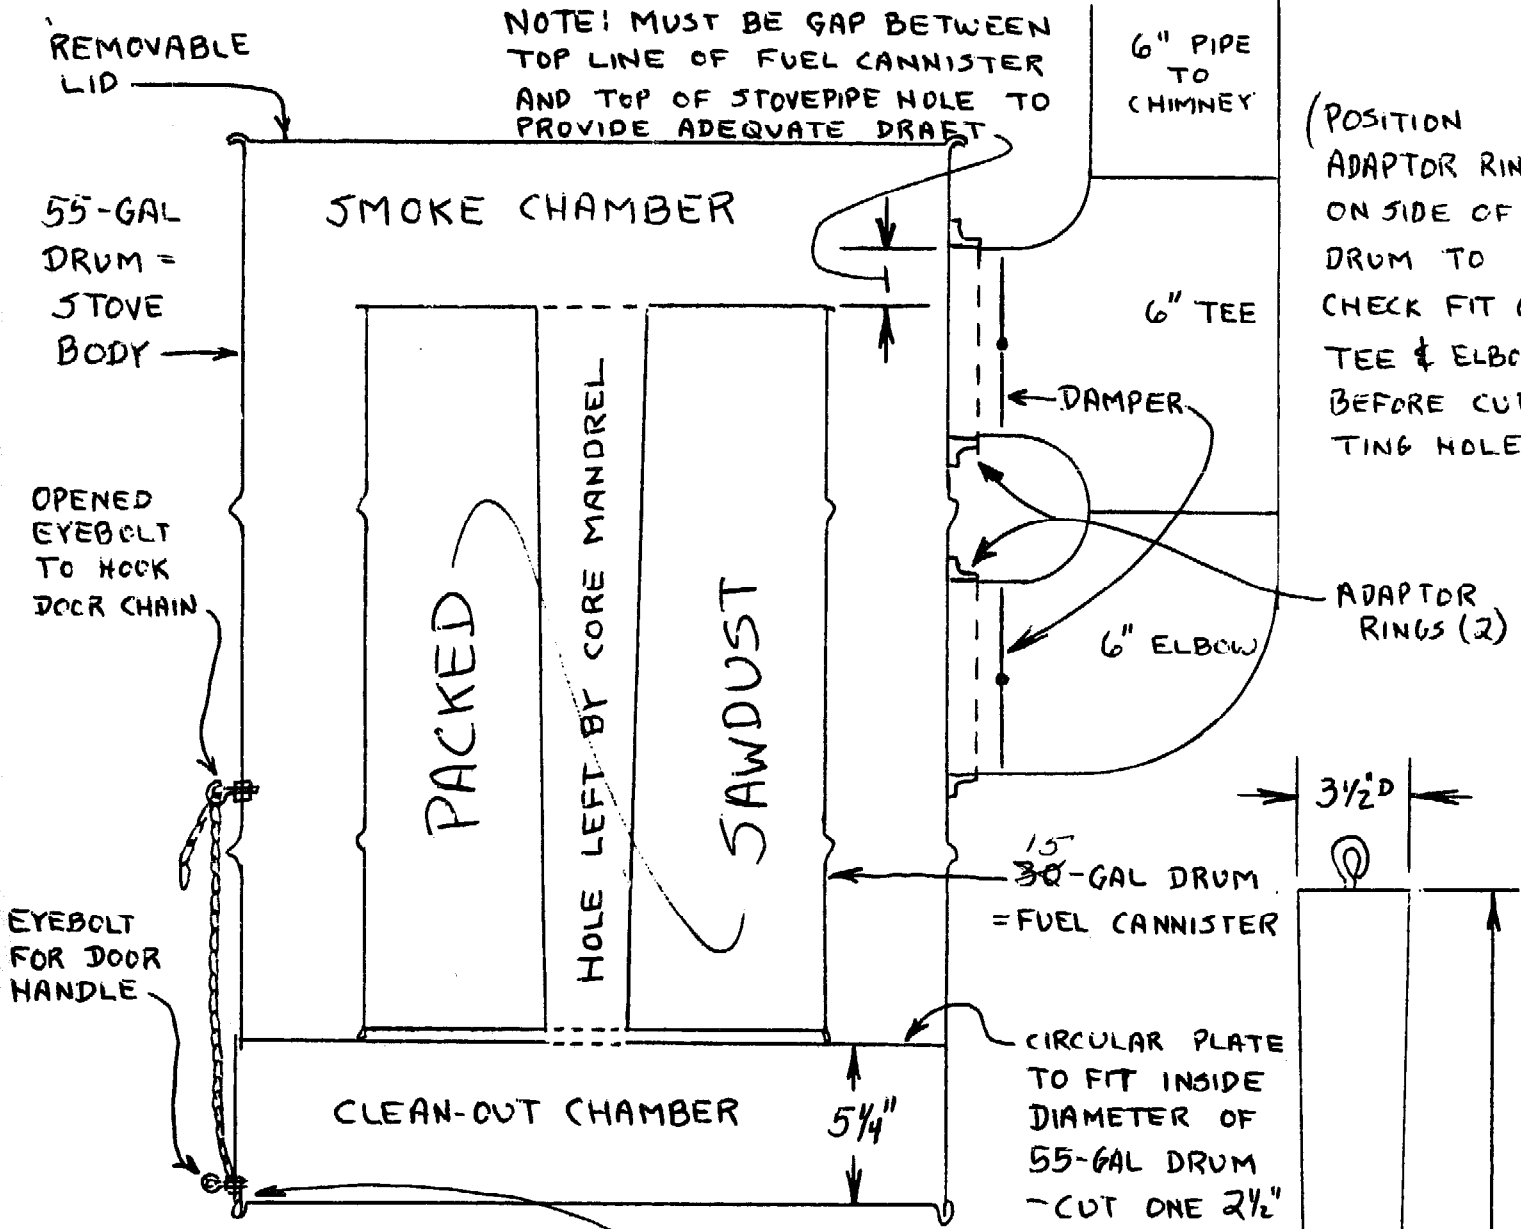 REMOVABLE
LID
NOTE! MUST BE GAP BETWEEN
TOP LINE OF FUEL CANNISTER
AND TOP OF STOVEPIPE HOLE TO
PROVIDE ADEQUATE DRAFT
6" PIPE
TO
CHIMNEY
(POSITION
ADAPTOR RIN
ON SIDE OF
DRUM TO
CHECK FIT
TEE & ELBO
BEFORE CUT
TING HOLE
55-GAL
DRUM =
STOVE
BODY
SMOKE CHAMBER
6" TEE
DAMPER
OPENED
EYEBOLT
TO HOOK
DOOR CHAIN
PACKED
HOLE LEFT BY CORE MANDREL
SAWDUST
ADAPTOR
RINGS (2)
6" ELBOW
3½" D
15
30-GAL DRUM
= FUEL CANNISTER
EYEBOLT
FOR DOOR
HANDLE
CIRCULAR PLATE
TO FIT INSIDE
DIAMETER OF
55-GAL DRUM
-CUT ONE 2½"
CLEAN-OUT CHAMBER
5¼"